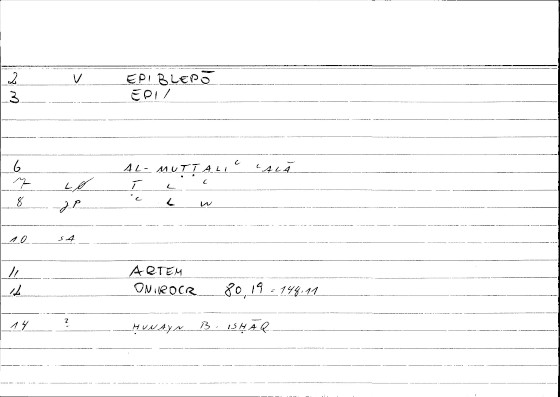 2 V EPIBLEPŌ
3 EPI/
6 AL-MUṬṬALIʿ ʿALĀ
7 LØ Ṭ L ʿ
8 JP ʿ L W
10 SA
11 ARTEM
12 ONIROCR 80,19 - 148.11
14 ? ḤUNAYN B. ISḤĀQ